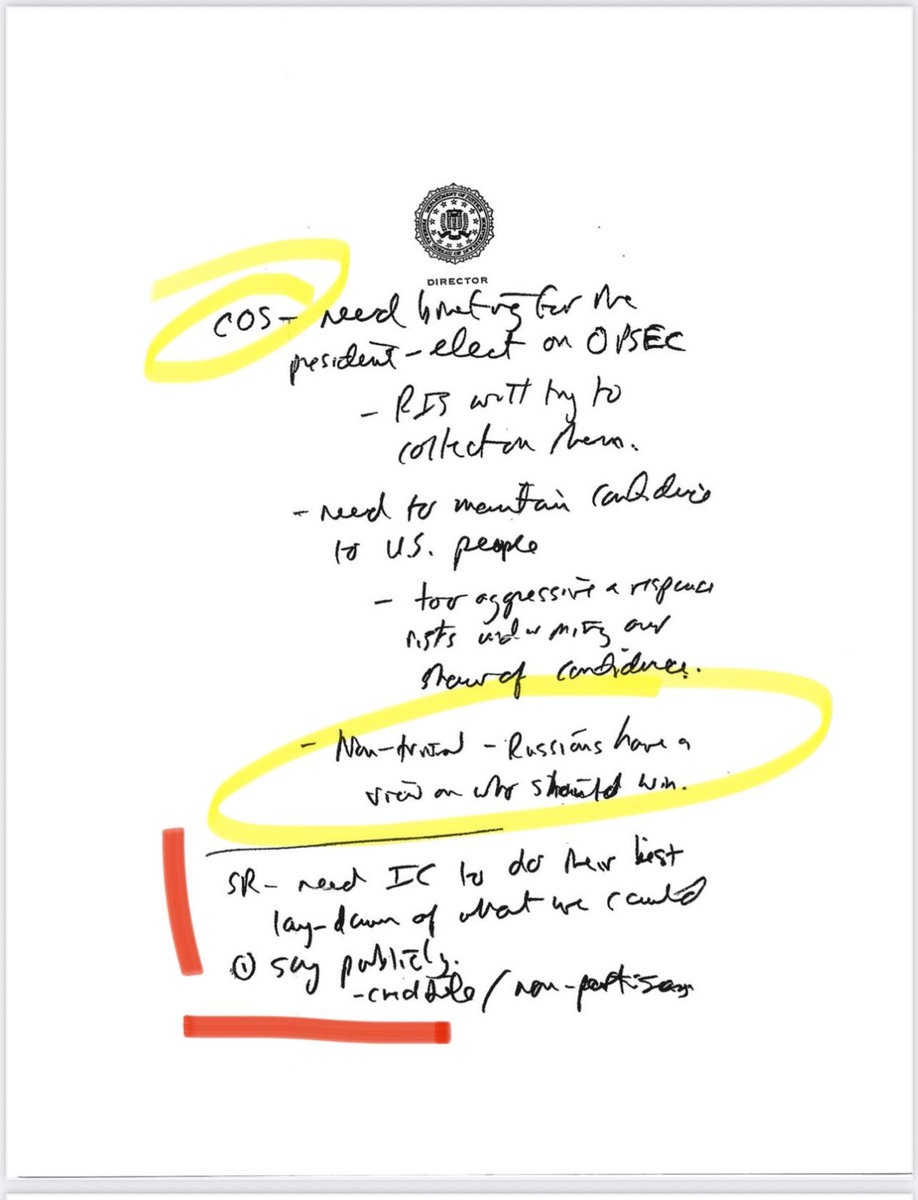 DEPARTMENT OF JUSTICE
FEDERAL BUREAU OF INVESTIGATION
DIRECTOR
COS - need briefing for the
president-elect on OPSEC
- RIS will try to
collect on them.
- need to maintain confidence
to U.S. people
- too aggressive a response
risks undermining our
show of confidence.
- Non-trivial - Russians have a
view on who should win.
SR - need IC to do their best
lay-down of what we could
① say publicly.
- credible / non-partisan